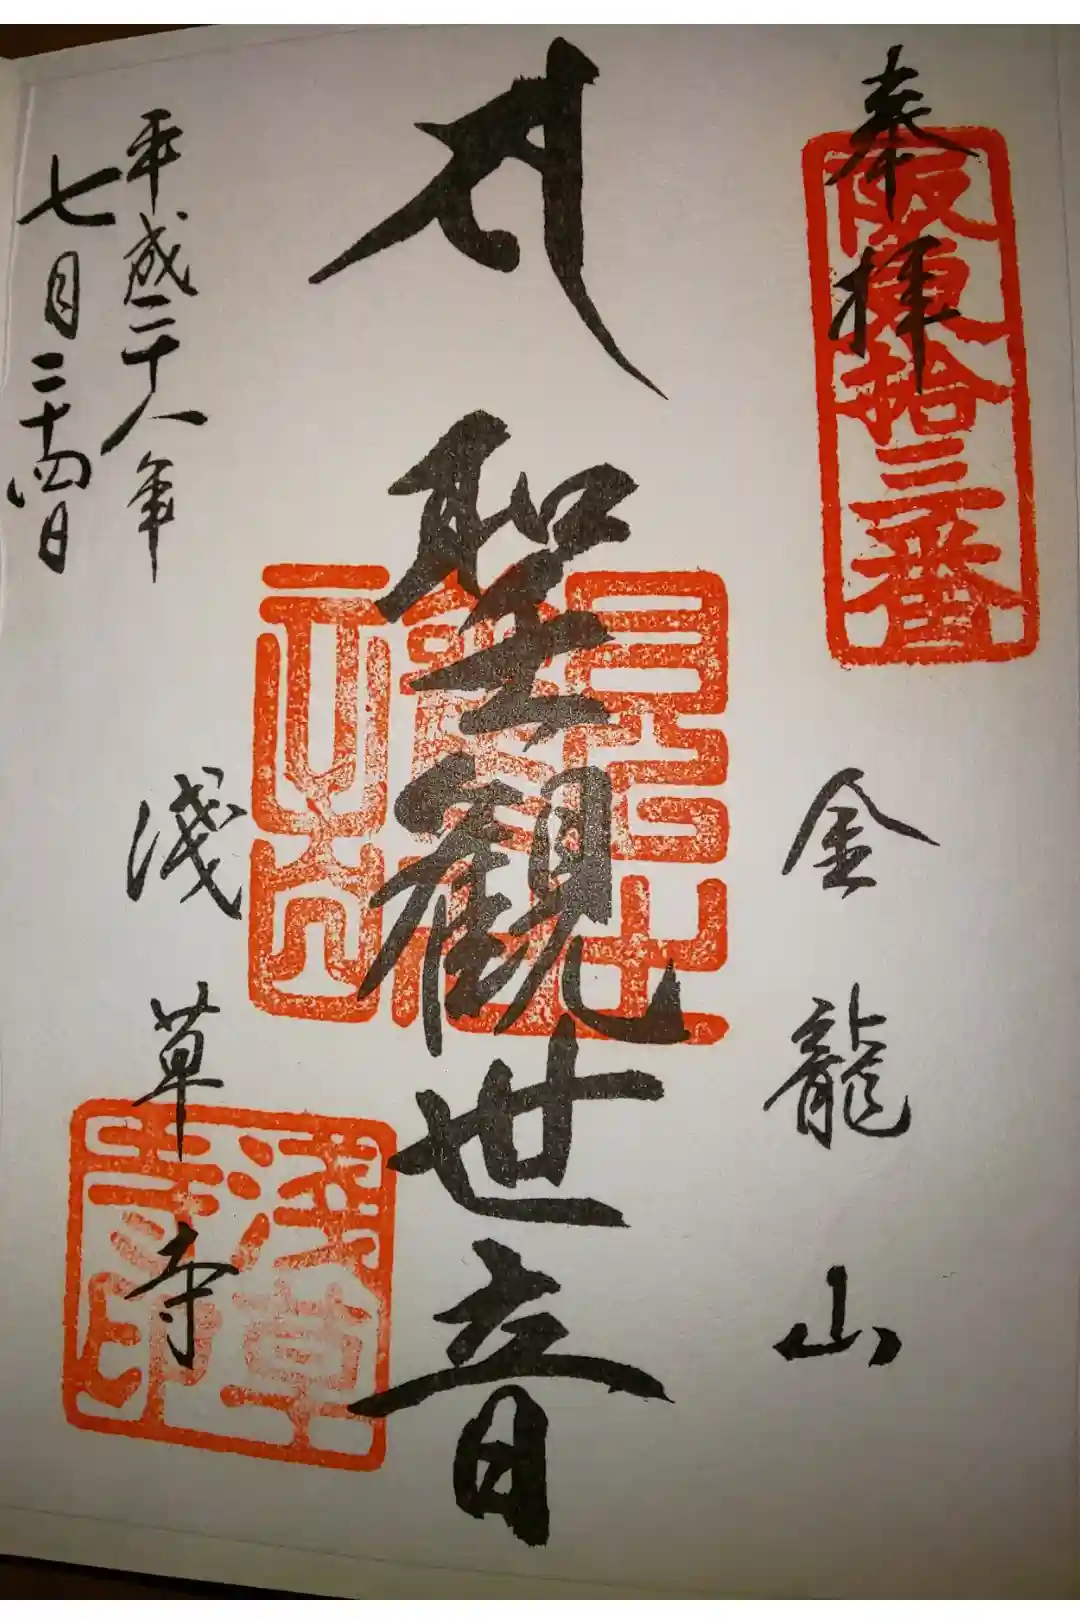 奉拝
阪東拾三番
金龍山
サ
聖観世音
平成二十八年
七月二十四日
淺草寺
淺草寺印